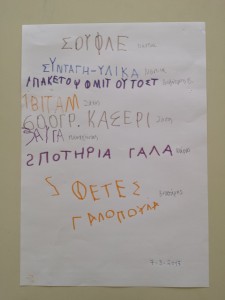 ΣΟΥΦΛΕ
ΣΥΝΤΑΓΗ-ΥΛΙΚΑ
1 ΠΑΚΕΤΟ ΨΦΜΙΤ ΟΥ ΤΟΣΤ
1 ΒΙΤΑΜ
600ΓΡ. ΚΑΣΕΡΙ
5ΑΥΓΑ
2 ΠΟΤΗΡΙΑ ΓΑΛΑ
5 ΦΕΤΕΣ
ΓΑΛΟΠΟΥΛΑ